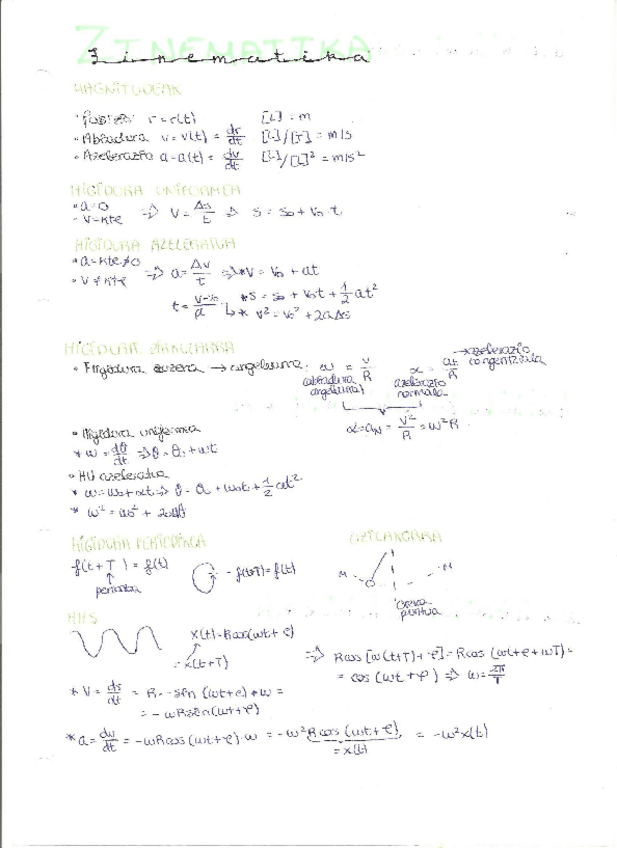 ZINEMATIKA
Zinematika
MAGNITUDEAK
· Posizioa r = r(t) [L] = m
· Abiadura v = v(t) = dr/dt [L]/[T] = m/s
· Azelerazio a = a(t) = dv/dt [L]/[L]² = m/s²
HIGIDURA UNIFORMEA
· a = 0
- v = kte ⇒ v = Δs/t ⇒ s = s₀ + v₀·t
HIGIDURA AZELERATUA
· a = kte ≠ 0
· v ≠ kte ⇒ a = Δv/t ⇒ * v = v₀ + at
t = v-v₀/a * s = s₀ + v₀t + 1/2 at²
↳ * v² = v₀² + 2aΔs
HIGIDURA ZIRKULARRA
· Higidura → angeluarra: ω = v/R α = at/R → azelerazio
abiadura angeluarra azelerazio normala
α = aN = v²/R = ω²R
· Higidura uniformea
* ω = dθ/dt ⇒ θ = θ₀ + ωt
· HU azeleratua
* ω = ω₀ + αt ⇒ θ = θ₀ + ω₀t + 1/2 αt²
* ω² = ω₀² + 2αΔθ
HIGIDURA PERIODIKOA
f(t+T) = f(t) - f(t+T) = f(t)
periodoa
M M
oreka puntua
HHS
x(t) = R cos(ωt + φ)
= x(t+T)
⇒ R cos [ω(t+T) + φ] = R cos (ωt + φ + ωT) =
= cos (ωt + φ) ⇒ ω = 2π/T
* v = ds/dt = R · -sen (ωt + φ) · ω =
= - ωR sen(ωt + φ)
* a = dv/dt = -ωR cos (ωt + φ) · ω = -ω² R cos (ωt + φ) = -ω² x(t)
= x(t)